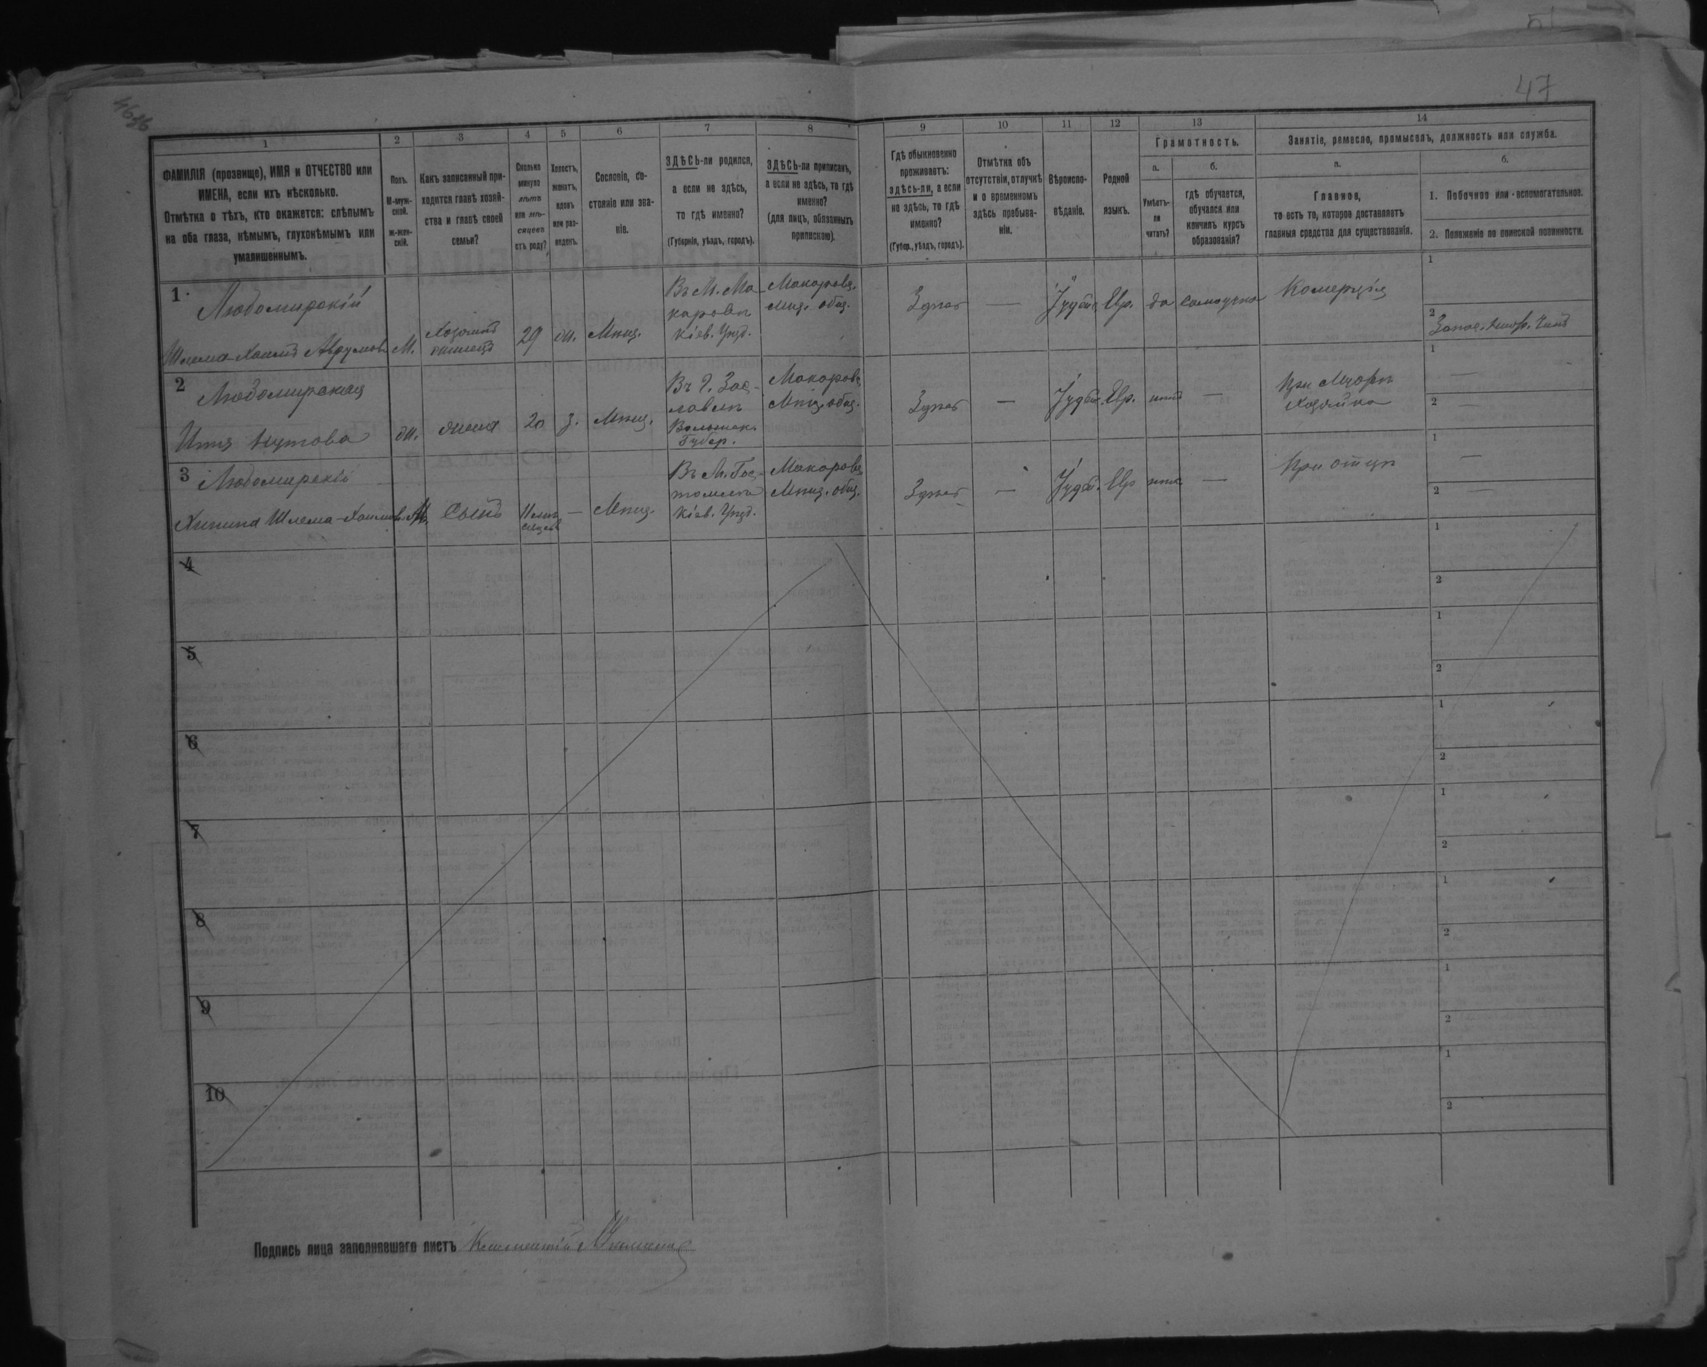 47
1
2
3
4
5
6
7
8
9
10
11
12
13
14
ФАМИЛІЯ (прозвище), ИМЯ и ОТЧЕСТВО или
ИМЕНА, если ихъ нѣсколько.
Отмѣтка о тѣхъ, кто окажется: слѣпымъ
на оба глаза, нѣмымъ, глухонѣмымъ или
умалишеннымъ.
Полъ.
М-муж-
ской.
ж-жен-
скій.
Какъ записанный при-
ходится главѣ хозяй-
ства и главѣ своей
семьи?
Сколько
минуло
лѣтъ
или мѣ-
сяцевъ
отъ роду?
Холостъ,
женатъ,
вдовъ
или раз-
веденъ.
Сословіе, со-
стояніе или зва-
ніе.
ЗДѢСЬ-ли родился,
а если не здѣсь,
то гдѣ именно?
(Губернія, уѣздъ, городъ).
ЗДѢСЬ-ли приписанъ,
а если не здѣсь, то гдѣ
именно?
(для лицъ, обязанныхъ
припискою).
Гдѣ обыкновенно
проживаетъ:
здѣсь-ли, а если
не здѣсь, то гдѣ
именно?
(Губер., уѣздъ, городъ).
Отмѣтка объ
отсутствіи, отлучкѣ
и о временномъ
здѣсь пребыва-
ніи.
Вѣроиспо-
вѣданіе.
Родной
языкъ.
Грамотность.
а.
Умѣетъ-
ли
читать?
б.
гдѣ обучается,
обучался или
кончилъ курсъ
образованія?
Занятіе, ремесло, промыселъ, должность или служба.
а.
Главное,
то есть то, которое доставляетъ
главныя средства для существованія.
б.
1. Побочное или вспомогательное.
2. Положеніе по воинской повинности.
1
Любомирскій
Шлема-Хаимъ Аврумов.
М.
29
ж.
Мѣщ.
Въ М. Ма-
каровѣ
Кіев. Уѣзд.
Макаровс.
мѣщ. общ.
Здѣсь
—
Іудей.
Евр.
да
Комерція
1
2
2
Любомирская
ж.
жена
20
з.
Мѣщ.
Въ г. Зас-
лавлѣ
Волынск.
Губер.
Макаровс.
Мѣщ. общ.
Здѣсь
—
Іудей.
Евр.
нѣтъ
—
При Мужѣ
Хозяйка
1 —
2 —
3
Любомирскій
Шлема-Хаимов.
М.
Сынъ
—
Мѣщ.
Въ М. Гос-
томелѣ
Кіев. Уѣзд.
Макаровс.
Мѣщ. общ.
Здѣсь
—
Іудей.
Евр
нѣтъ
—
При отцѣ
1 —
2 —
4
1
2
5
1
2
6
1
2
7
1
2
8
1
2
9
1
2
10
1
2
Подпись лица заполнявшаго листъ